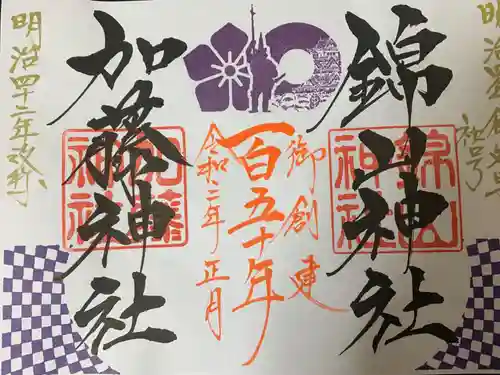 社号
錦山神社
錦山
神社
御創建
百五十年
令和二年正月
加藤神社
加藤
神社
明治四十二年改称